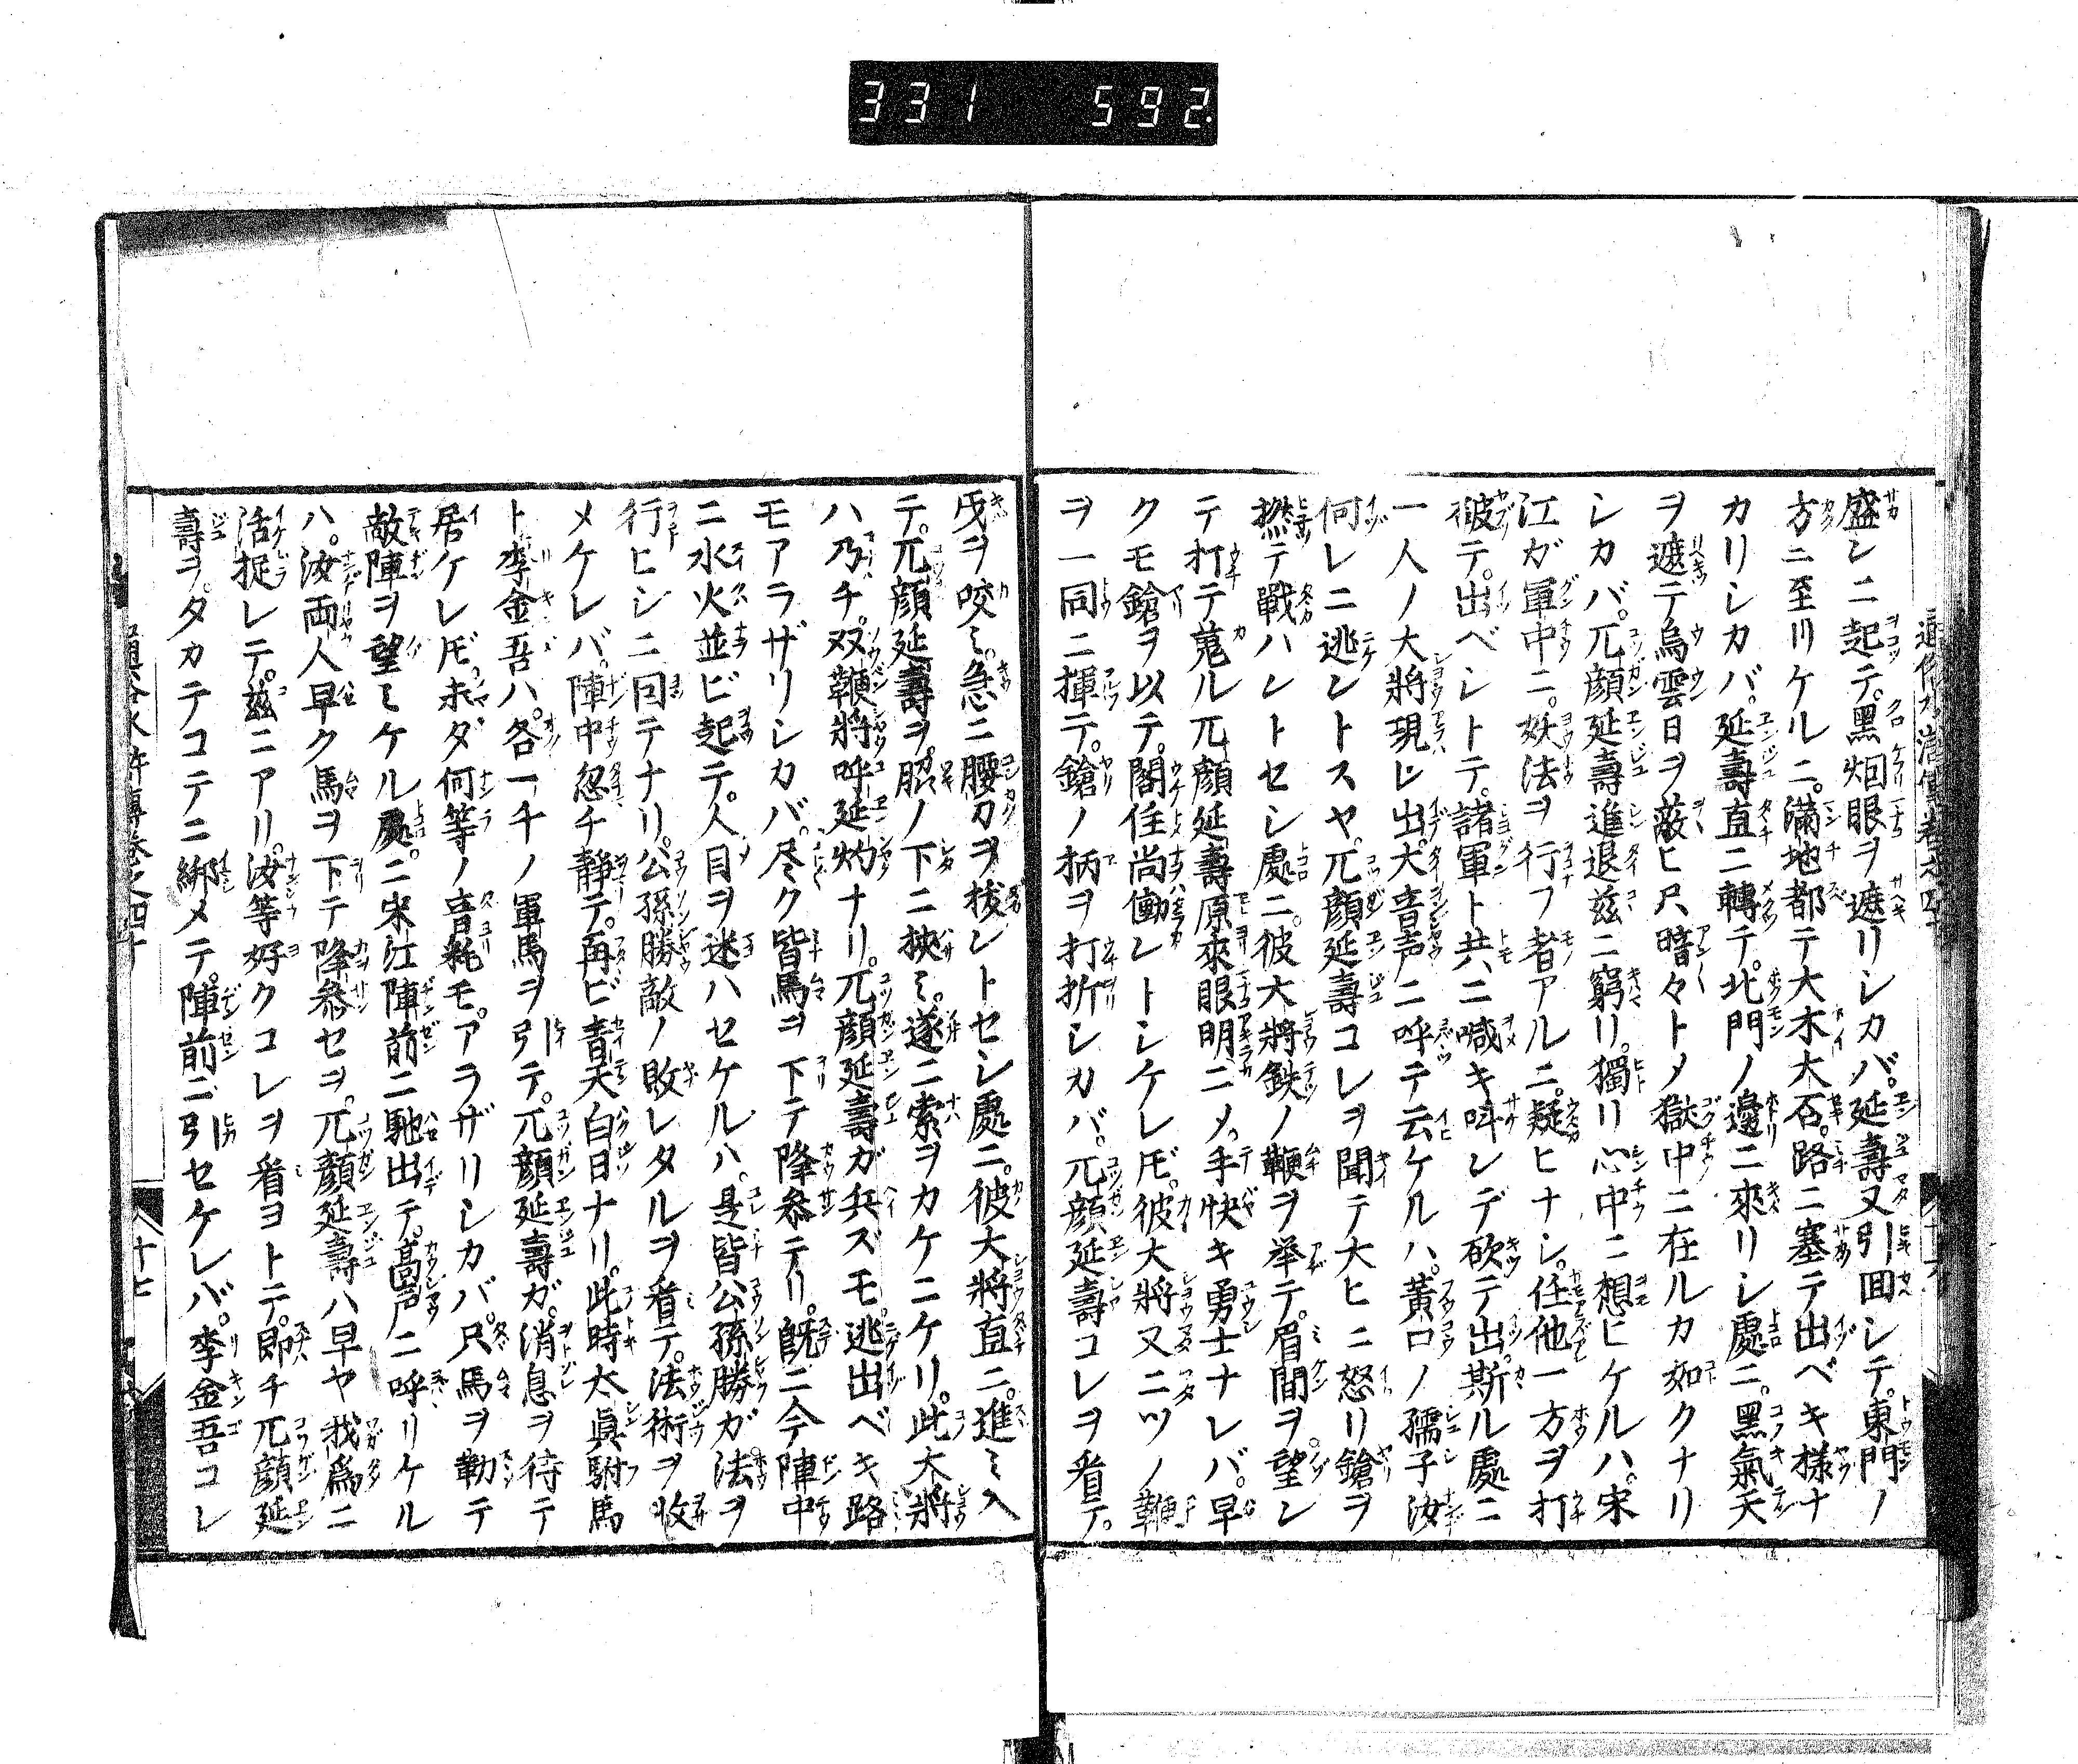 331 592
盛ンニ起テ。黒烟眼ヲ遮リシカバ。延壽又引囬シテ。東門ノ
方ニ至リケルニ。滿地都テ大木大石。路ニ塞テ出ベキ樣ナ
カリシカバ。延壽直ニ轉チ。北門ノ邊ニ來リシ處ニ。黒氣天
ヲ遮テ烏雲日ヲ蔽ヒ尺暗々トメ獄中ニ在ルカ如クナリ
シカバ。兀顔延壽進退茲ニ窮リ。獨リ心中ニ想ヒケルハ。宋
江ガ軍中ニ。妖法ヲ行フ者アルニ。疑ヒナシ。任他一方ヲ打
破テ。出ベシトテ。諸軍ト共ニ喊キ呌レデ砍テ出。斯ル處ニ
一人ノ大將現レ出。大音声ニ呼テ云ケルハ。黄口ノ孺子汝
何レニ逃ントスヤ。兀顔延壽コレヲ聞テ大ヒニ怒リ鎗ヲ
撚テ戰ハントセシ處ニ。彼大將鉄ノ鞭ヲ举テ。眉間ヲ望ン
テ打テ蒐ル兀顔延壽原來眼明ニメ。手快キ勇士ナレバ。早
クモ鎗ヲ以テ。閣住尚働レトシケレ𪜈。彼大將又ニツノ鞭
ヲ一同ニ揮テ。鎗ノ柄ヲ打折シカバ。兀顔延壽コレヲ看テ。
牙ヲ咬ミ。急ニ腰刀ヲ抜ントセシ處ニ。彼大將直ニ。進ミ入
テ。兀顔延壽ヲ。脇ノ下ニ挾ミ。遂ニ索ヲカケニケリ。此大將
ハ。乃チ。双鞭將呼延灼ナリ。兀顔延壽ガ兵ズモ。逃出ベキ路
モアラザリシカバ。尽ク皆馬ヲ下テ降參テリ。既ニ今陣中
ニ水火並ビ起テ。人目ヲ迷ハセケルハ。是皆公孫勝ガ法ヲ
行ヒシニ囙テナリ。公孫勝敵ノ敗レタルヲ看テ。法術ヲ收
メケレバ。陣中忽チ靜テ。再ビ青天白日ナリ。此時太眞駙馬
ト李金吾ハ。各一千ノ軍馬ヲ引テ。兀顔延壽ガ。消息ヲ待テ
居ケレ𪜈。未ダ何等ノ音耗モ。アラザリシカバ。尺馬ヲ勒テ
敵陣ヲ望ミケル處。ニ宋江陣前ニ馳出テ。高声ニ呼リケル
ハ。汝両人早ク馬ヲ下テ降參セヨ。兀顔延壽ハ早ヤ我爲ニ
活捉レテ。茲ニアリ。汝等好クコレヲ看ヨトテ。即チ兀顔延
壽ヲ。タカテコテニ綁メテ。陣前ニ引セケレバ。李金吾コレ
十七